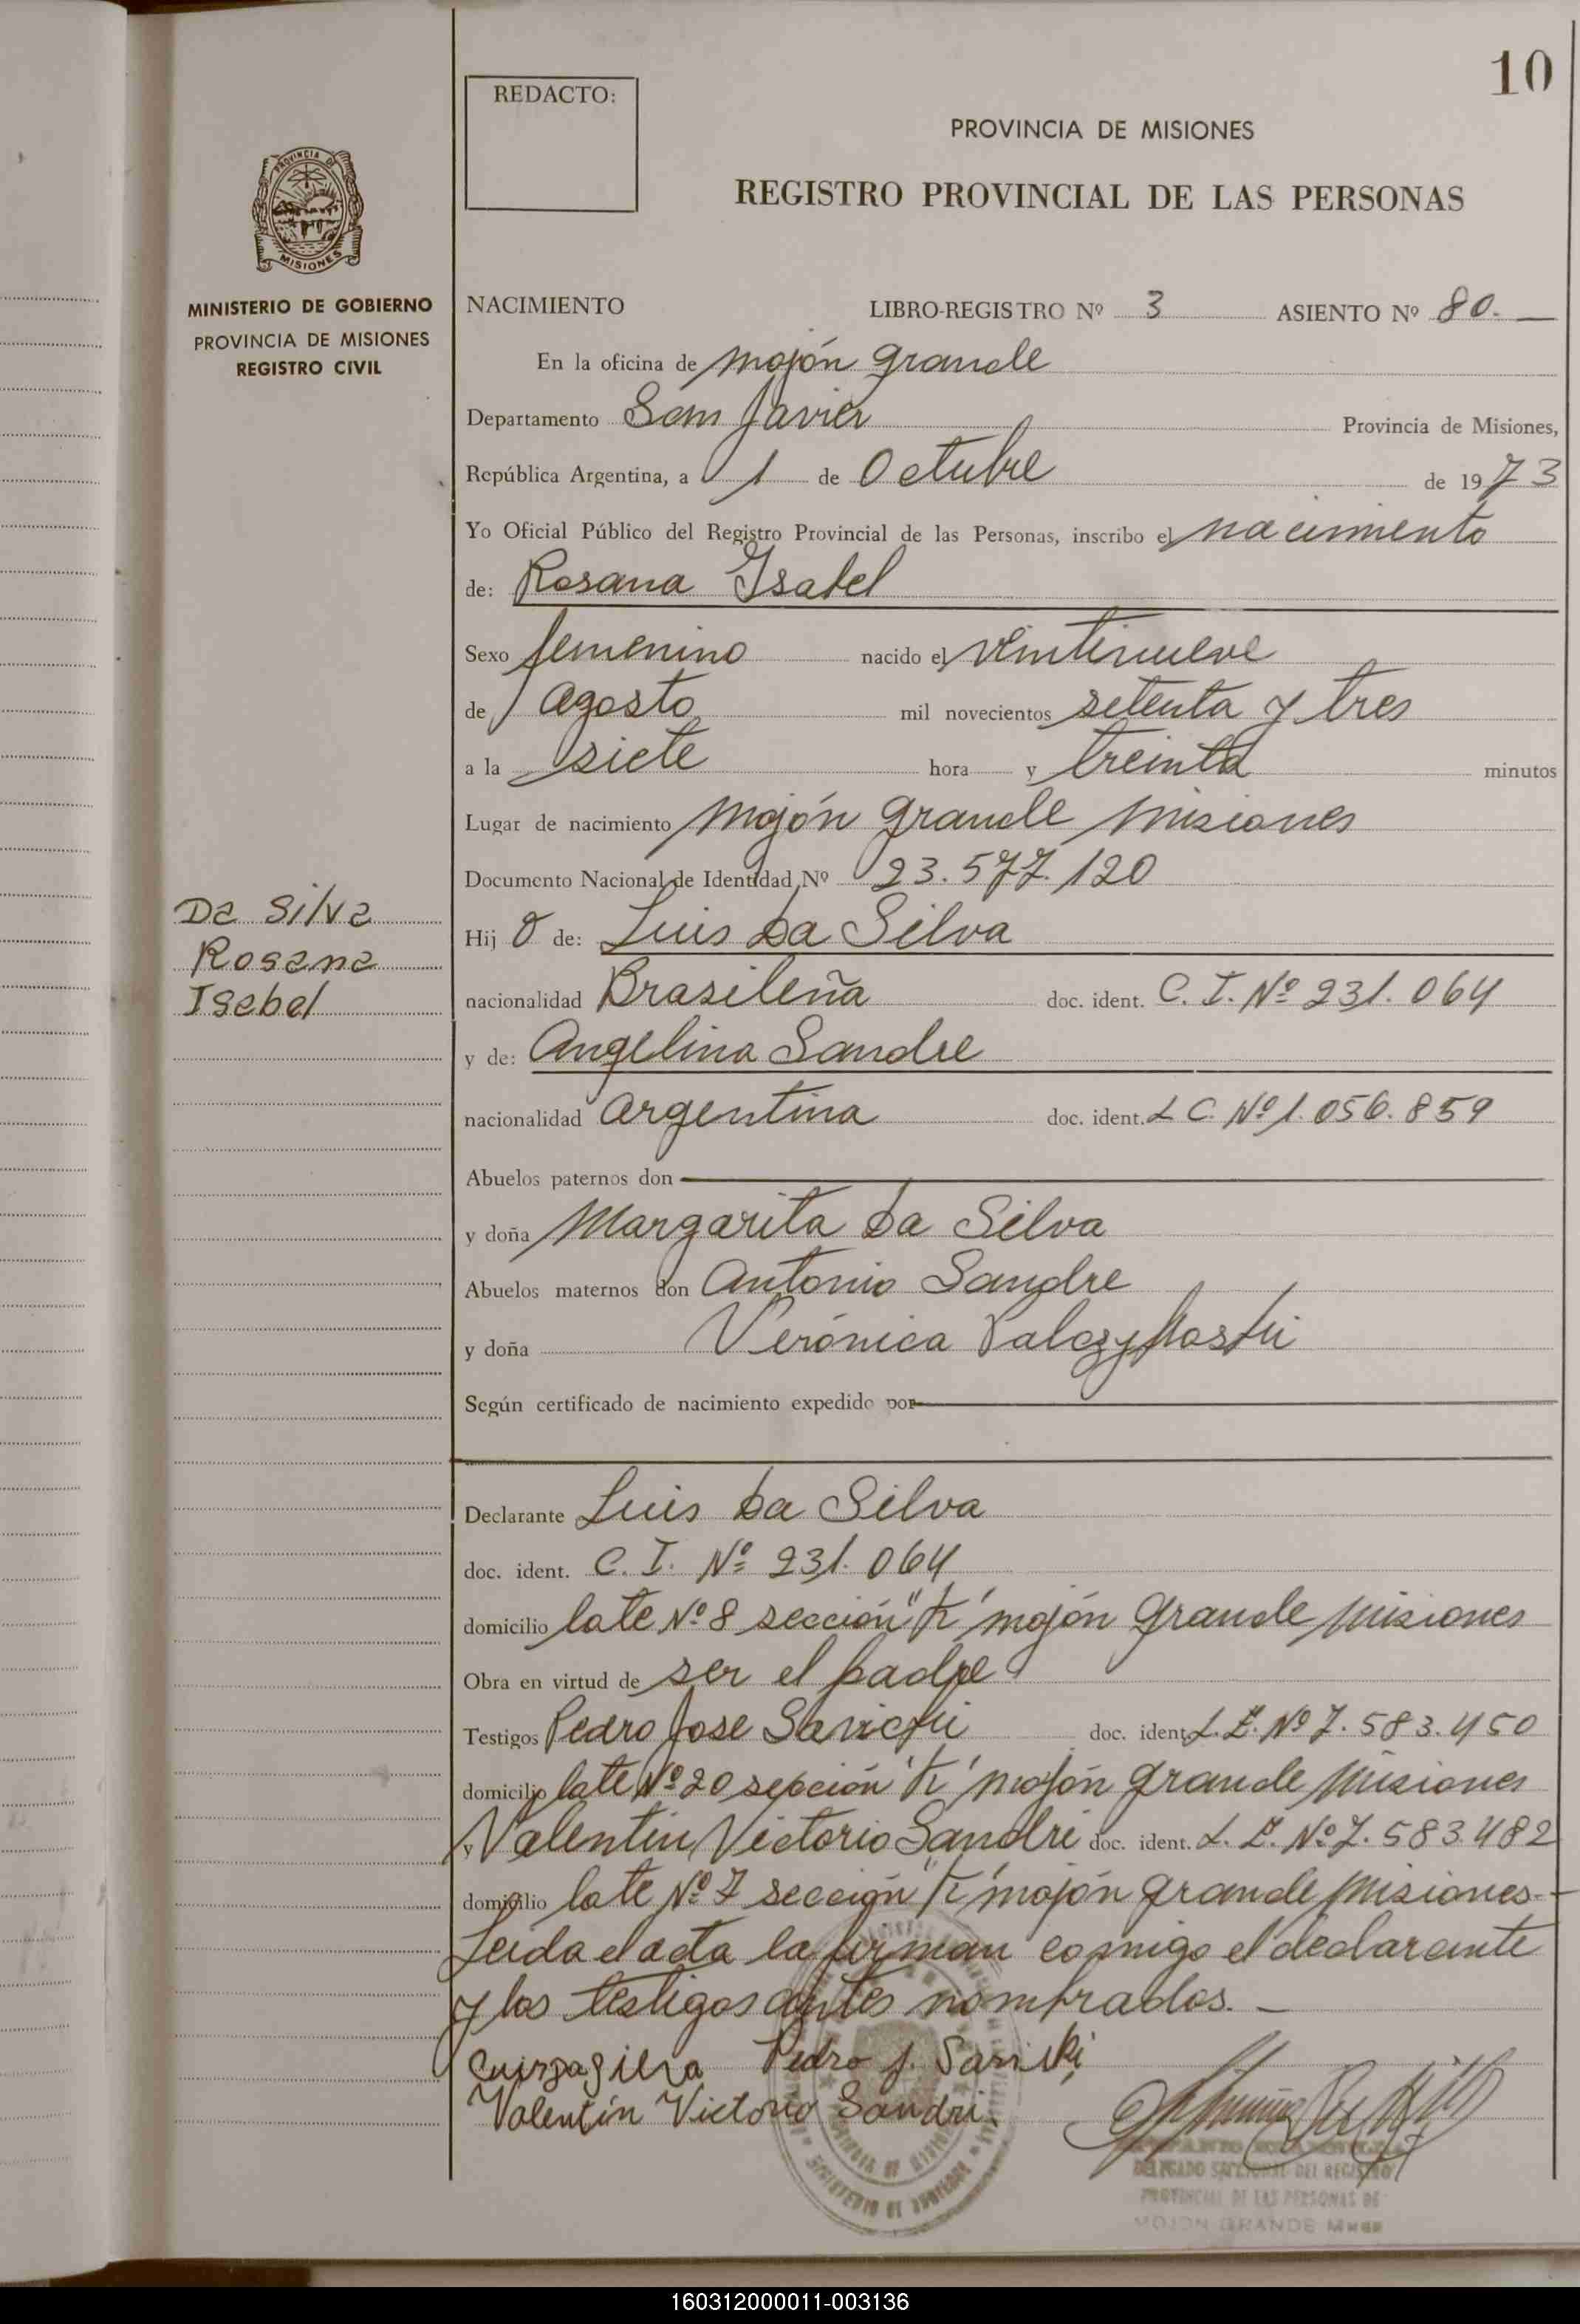 10
REDACTO:
PROVINCIA DE MISIONES
REGISTRO PROVINCIAL DE LAS PERSONAS
PROVINCIA DE
MISIONES
MINISTERIO DE GOBIERNO
PROVINCIA DE MISIONES
REGISTRO CIVIL
NACIMIENTO LIBRO-REGISTRO Nº 3 ASIENTO Nº 80.
En la oficina de mojón grande
Departamento San Javier Provincia de Misiones,
República Argentina, a 1 de Octubre de 1973
Yo Oficial Público del Registro Provincial de las Personas, inscribo el nacimiento
de: Rosana Isabel
Sexo femenino nacido el veintinueve
de agosto mil novecientos setenta y tres
a la siete hora y treinta minutos
Lugar de nacimiento mojón grande misiones
Documento Nacional de Identidad Nº 23.577.120
Da Silva
Rosana
Isabel
Hij a de: Luis Da Silva
nacionalidad Brasileña doc. ident. C. I. Nº 231.064
y de: Angelina Sandre
nacionalidad argentina doc. ident. L C. Nº 1.056.859
Abuelos paternos don
y doña Margarita Da Silva
Abuelos maternos don Antonio Sandre
y doña Verónica
Según certificado de nacimiento expedido por
Declarante Luis Da Silva
doc. ident. C. I. Nº 231.064
domicilio lote Nº 8 sección "K" mojón grande misiones
Obra en virtud de ser el padre
Testigos Pedro Jose doc. ident. L. E. Nº 7.583.450
domicilio lote Nº 20 sección "K" mojón grande misiones
y Valentin Victorio Sandri doc. ident. L. E. Nº 7.583.482
domicilio lote Nº 7 sección "K" mojón grande misiones.-
Leida el acta la firman conmigo el declarante
y los testigos antes nombrados.
Pedro J.
Valentín Victorio Sandri
DELEGADO SECCIONAL DEL REGISTRO
PROVINCIAL DE LAS PERSONAS DE
MOJON GRANDE
160312000011-003136